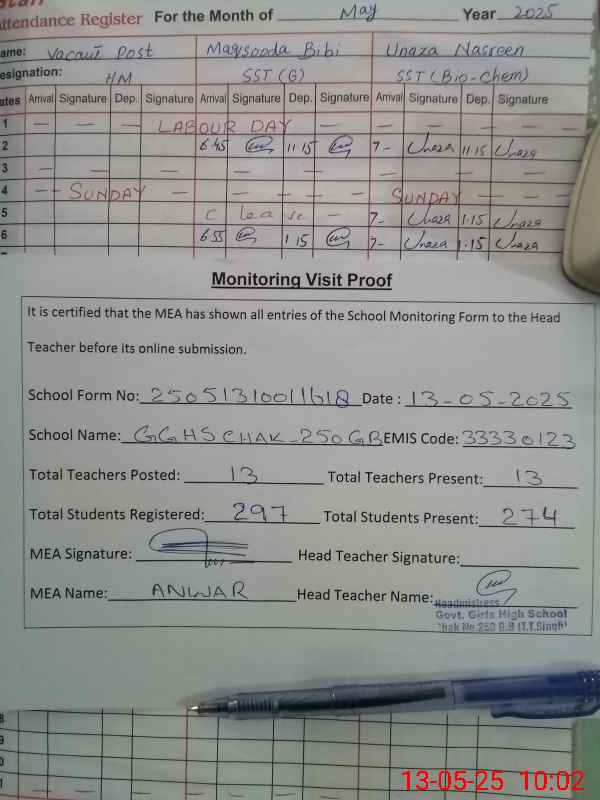 Staff
Attendance Register For the Month of May Year 2025
Name: Vacant Post Maqsooda Bibi Unaza Nasreen
Designation: HM SST (G) SST (Bio-Chem)
Dates Arrival Signature Dep. Signature Arrival Signature Dep. Signature Arrival Signature Dep. Signature
1 — — — LABOUR DAY — — — — — —
2 6:45 11:15 7- Unaza 11:15 Unaza
3 — — — — — — — — — —
4 — — SUNDAY — — — — — SUNDAY — — —
5 C leave — 7- Unaza 1.15 Unaza
6 6:55 1 15 7- Unaza 1.15 Unaza
Monitoring Visit Proof
It is certified that the MEA has shown all entries of the School Monitoring Form to the Head
Teacher before its online submission.
School Form No: Date : 13-05-2025
School Name: GGHS CHAK-250 GB EMIS Code: 33330123
Total Teachers Posted: 13 Total Teachers Present: 13
Total Students Registered: 297 Total Students Present: 274
MEA Signature: Head Teacher Signature:
MEA Name: ANWAR Head Teacher Name:
Headmistress
Govt. Girls High School
Chak No.250 G.B (T.T.Singh)
13-05-25 10:02